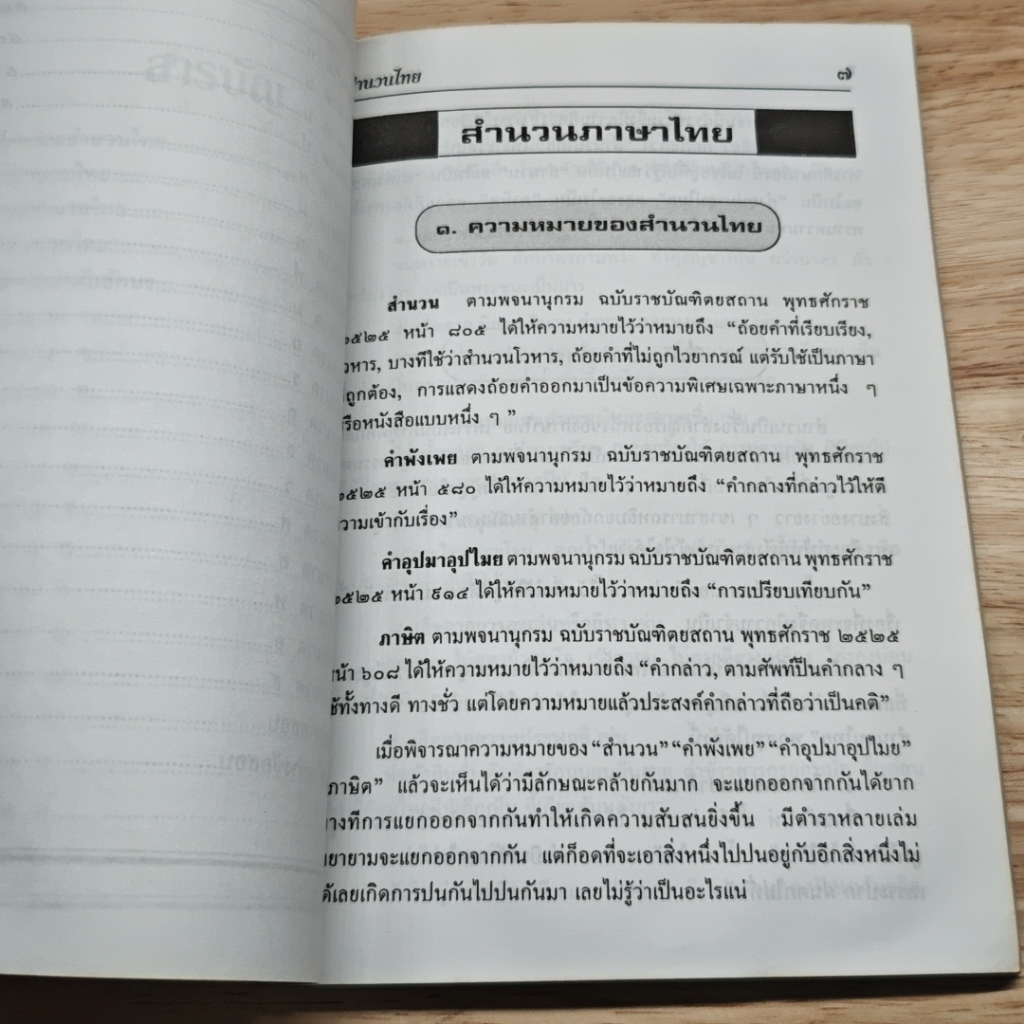 สารบัญ
สำนวนไทย ๗
สำนวนภาษาไทย
๑. ความหมายของสำนวนไทย
สำนวน ตามพจนานุกรม ฉบับราชบัณฑิตยสถาน พุทธศักราช
๒๕๒๕ หน้า ๘๐๕ ได้ให้ความหมายไว้ว่าหมายถึง “ถ้อยคำที่เรียบเรียง,
โวหาร, บางทีใช้ว่าสำนวนโวหาร, ถ้อยคำที่ไม่ถูกไวยากรณ์ แต่รับใช้เป็นภาษา
ที่ถูกต้อง, การแสดงถ้อยคำออกมาเป็นข้อความพิเศษเฉพาะภาษาหนึ่ง ๆ
หรือหนังสือแบบหนึ่ง ๆ ”
คำพังเพย ตามพจนานุกรม ฉบับราชบัณฑิตยสถาน พุทธศักราช
๒๕๒๕ หน้า ๕๘๐ ได้ให้ความหมายไว้ว่าหมายถึง “คำกลางที่กล่าวไว้ให้ตี
ความเข้ากับเรื่อง”
คำอุปมาอุปไมย ตามพจนานุกรม ฉบับราชบัณฑิตยสถาน พุทธศักราช
๒๕๒๕ หน้า ๙๑๔ ได้ให้ความหมายไว้ว่าหมายถึง “การเปรียบเทียบกัน”
ภาษิต ตามพจนานุกรม ฉบับราชบัณฑิตยสถาน พุทธศักราช ๒๕๒๕
หน้า ๖๐๘ ได้ให้ความหมายไว้ว่าหมายถึง “คำกล่าว, ตามศัพท์เป็นคำกลาง ๆ
ใช้ทั้งทางดี ทางชั่ว แต่โดยความหมายแล้วประสงค์คำกล่าวที่ถือว่าเป็นคติ”
เมื่อพิจารณาความหมายของ “สำนวน” “คำพังเพย” “คำอุปมาอุปไมย”
“ภาษิต” แล้วจะเห็นได้ว่ามีลักษณะคล้ายกันมาก จะแยกออกจากกันได้ยาก
บางทีการแยกออกจากกันทำให้เกิดความสับสนยิ่งขึ้น มีตำราหลายเล่ม
พยายามจะแยกออกจากกัน แต่ก็อดที่จะเอาสิ่งหนึ่งไปปนอยู่กับอีกสิ่งหนึ่งไม่
ได้เลยเกิดการปนกันไปปนกันมา เลยไม่รู้ว่าเป็นอะไรแน่